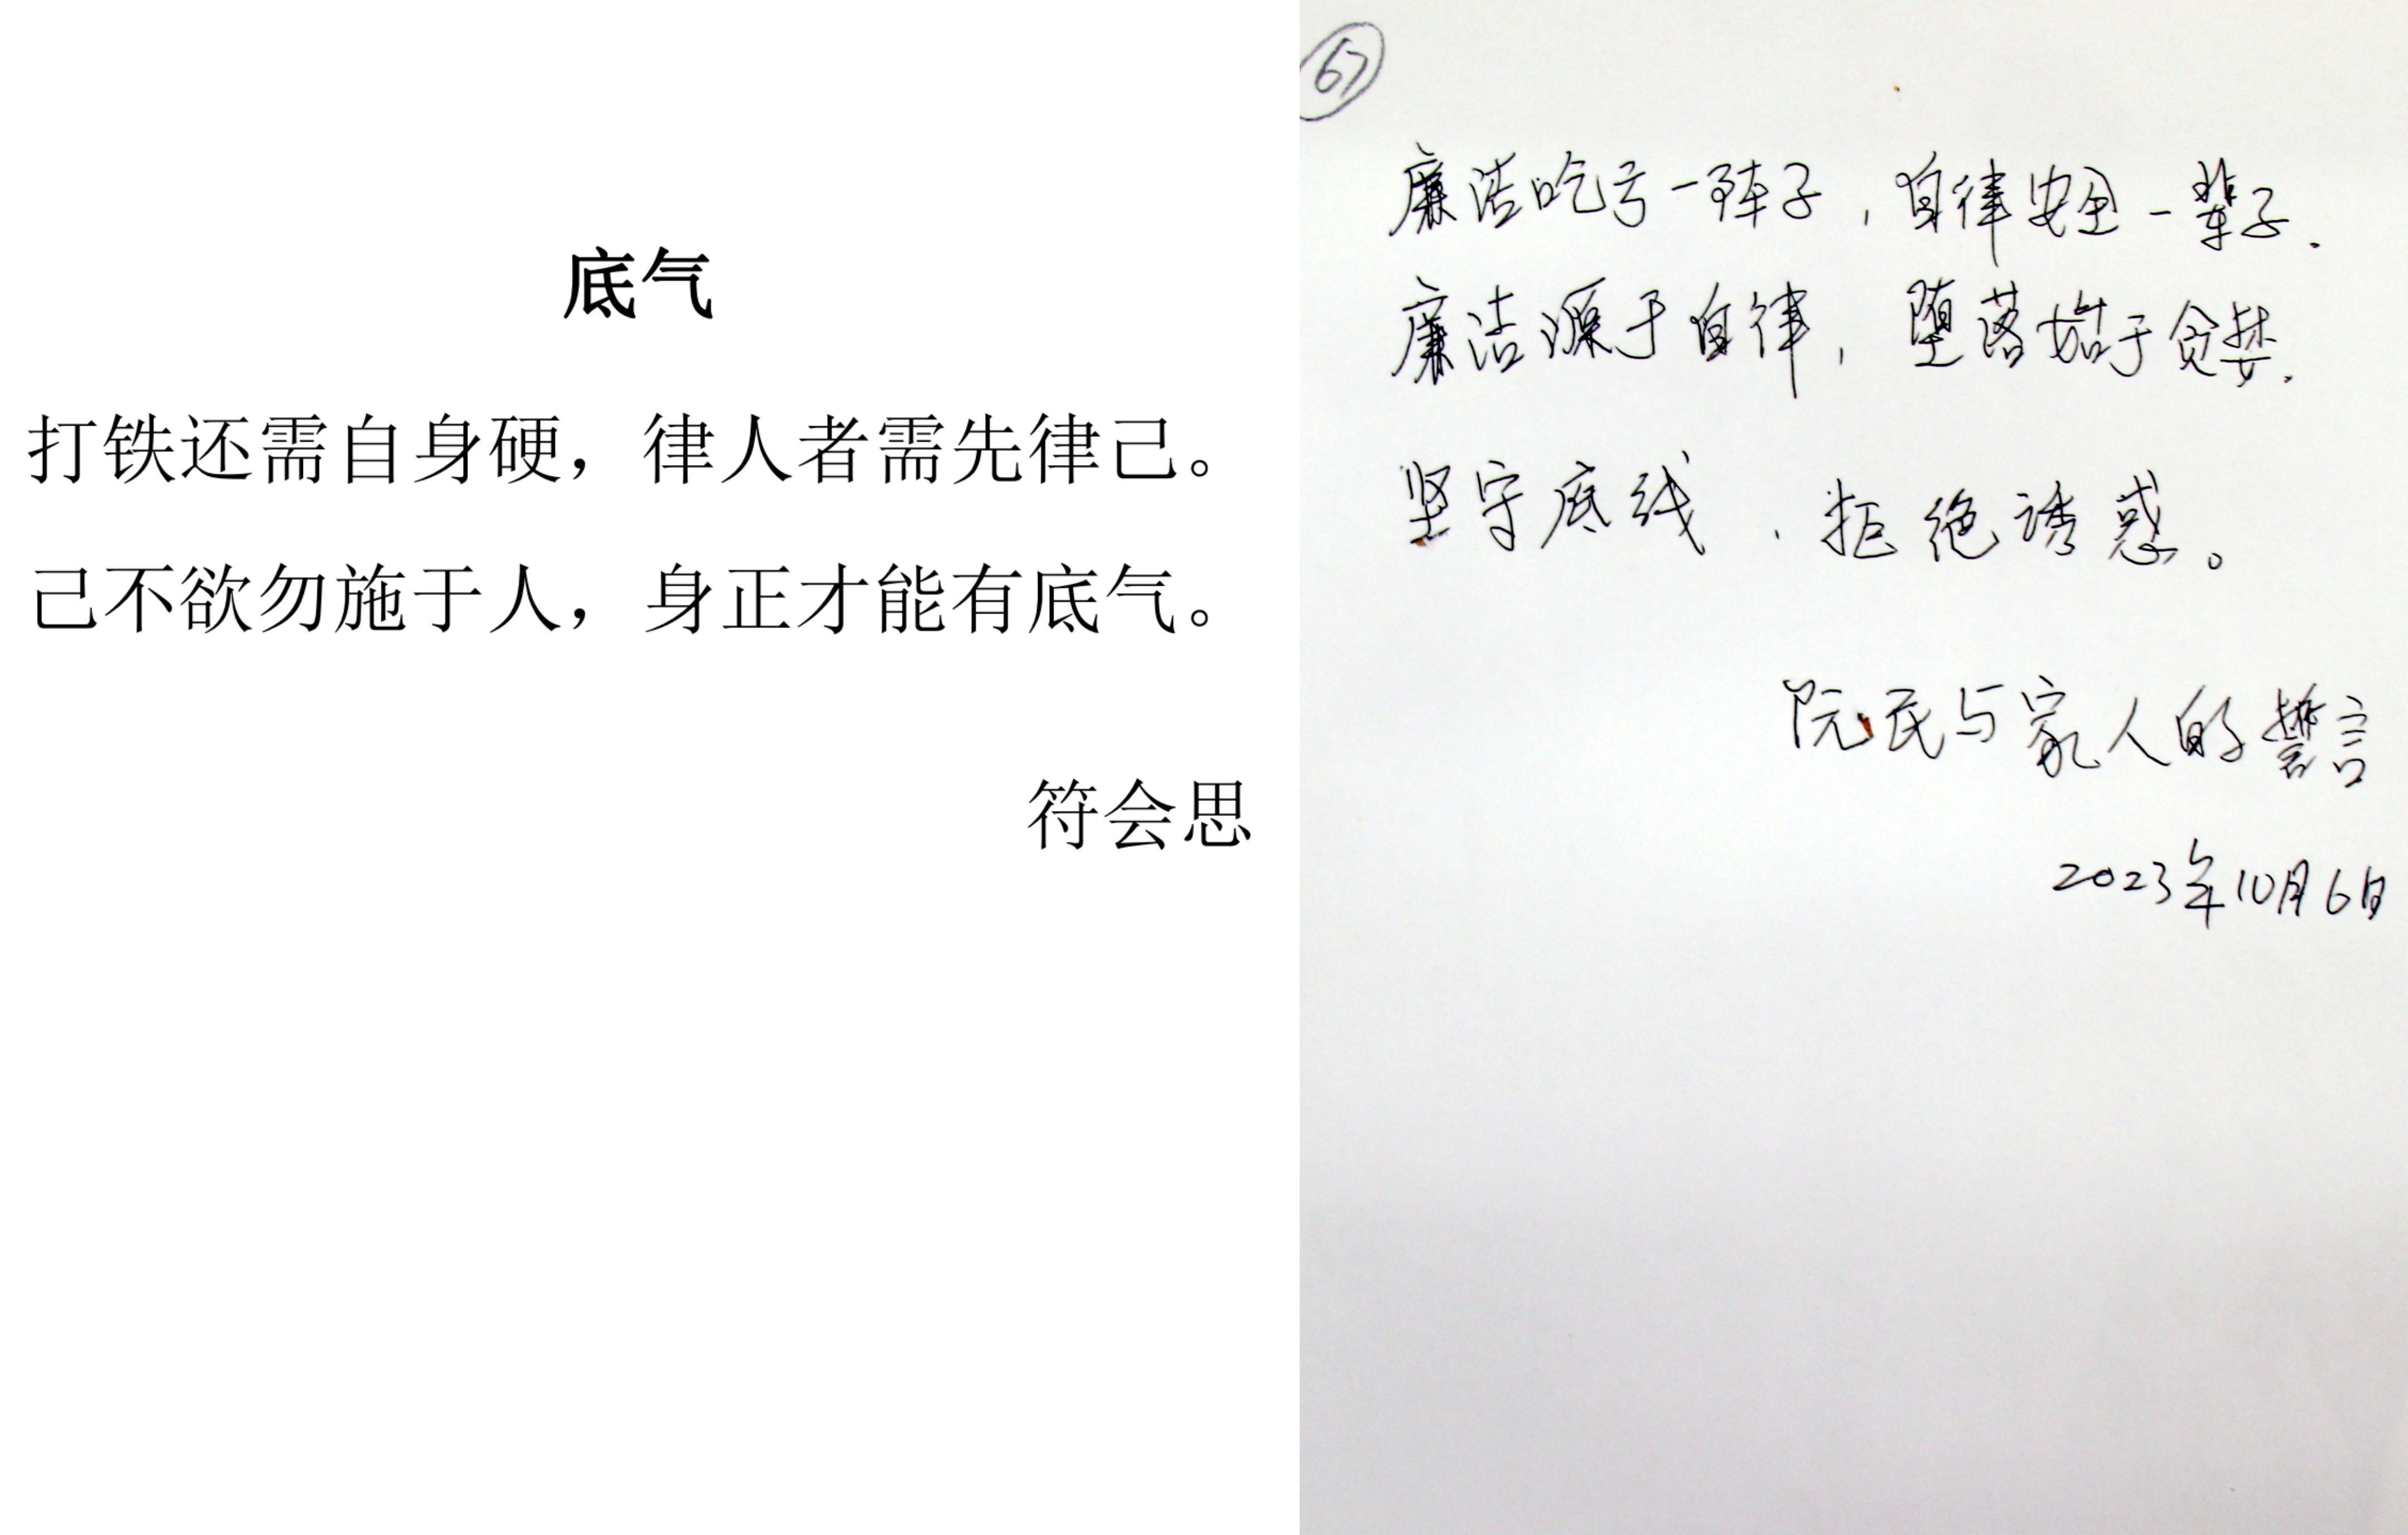 底气
打铁还需自身硬，律人者需先律己。
己不欲勿施于人，身正才能有底气。
符会思
67
廉洁吃亏一阵子，自律安全一辈子.
廉洁源于自律，堕落始于贪婪.
坚守底线、拒绝诱惑。
阮民与家人的誓言
2023年10月6日